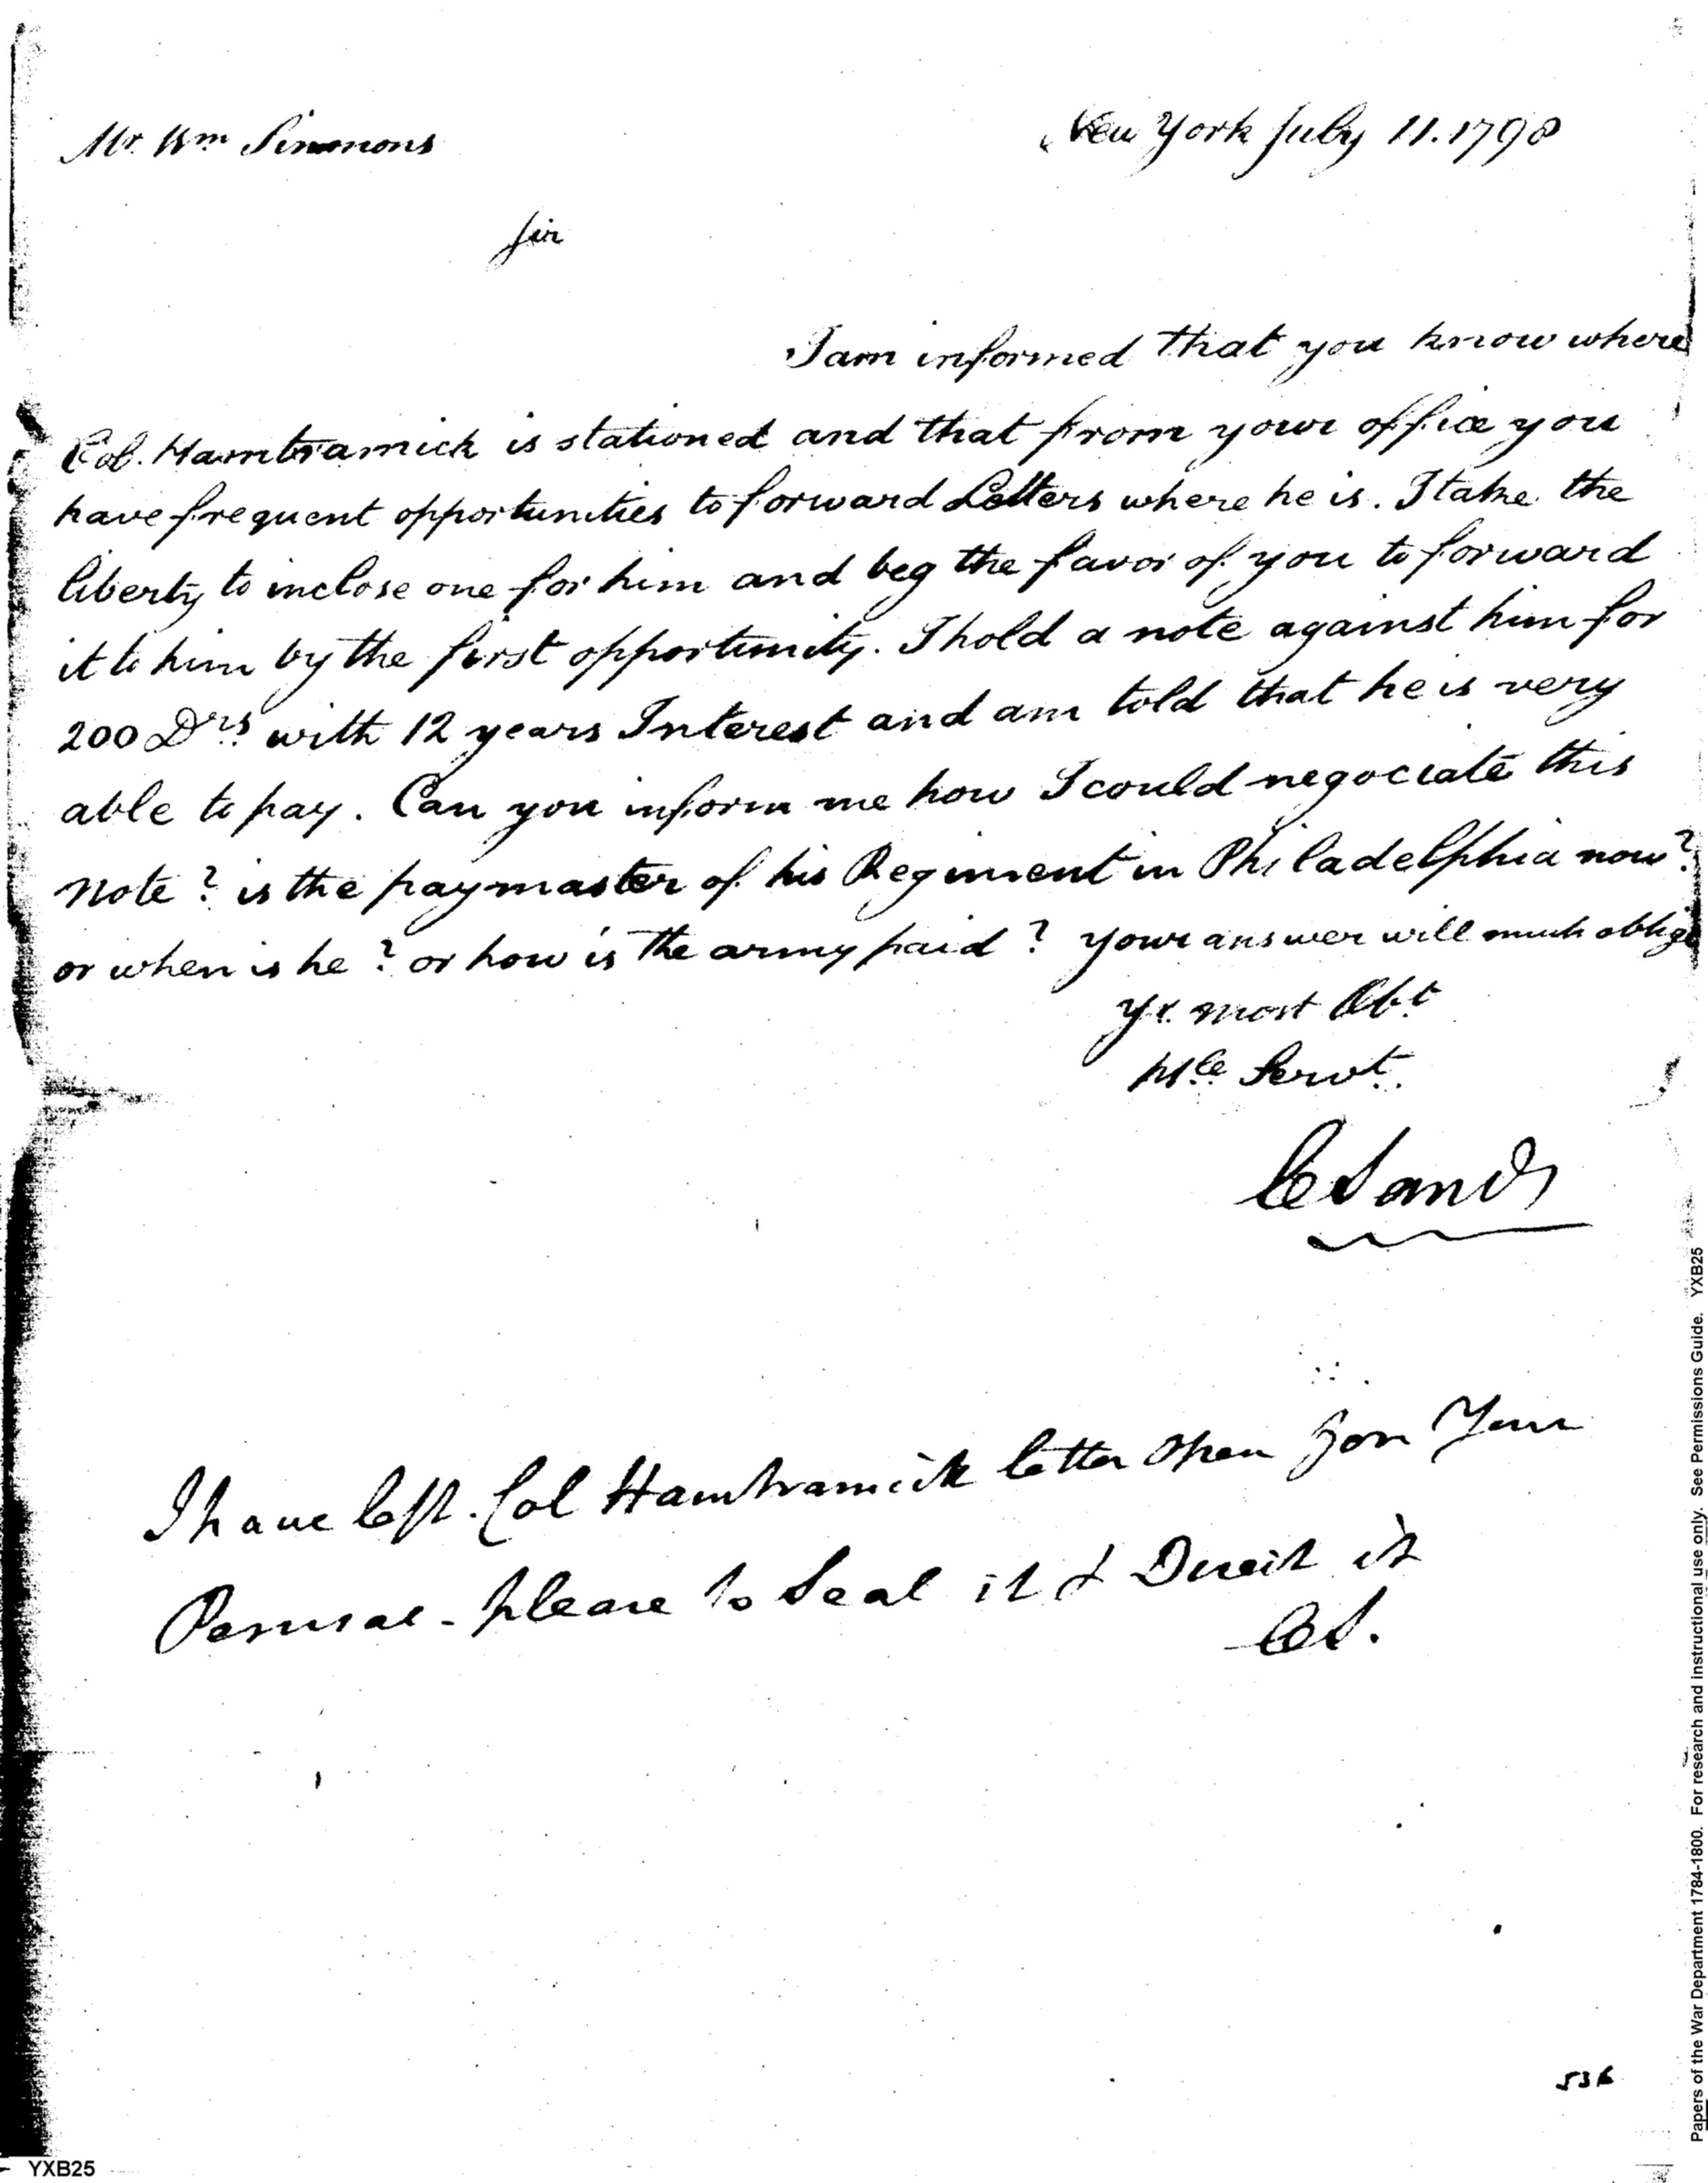 Mr. Wm Simmons
New York July 11. 1798
Sir
I am informed that you know where
Col. Hambramick is stationed and that from your office you
have frequent opportunities to forward Letters where he is. I take the
liberty to inclose one for him and beg the favor of you to forward
it to him by the first opportunity. I hold a note against him for
200 Drs. with 12 years Interest and am told that he is very
able to pay. Can you inform me how I could negociate this
note? is the paymaster of his Regiment in Philadelphia now?
or when is he? or how is the army paid? your answer will much oblige
Yr. most Obt.
Hle Servt.
C Sands
I have left. Col Hamtramick letter open for Your
Perusal - please to Seal it & Direct it
CS.
536
YXB25
Papers of the War Department 1784-1800. For research and instructional use only. See Permissions Guide. YXB25